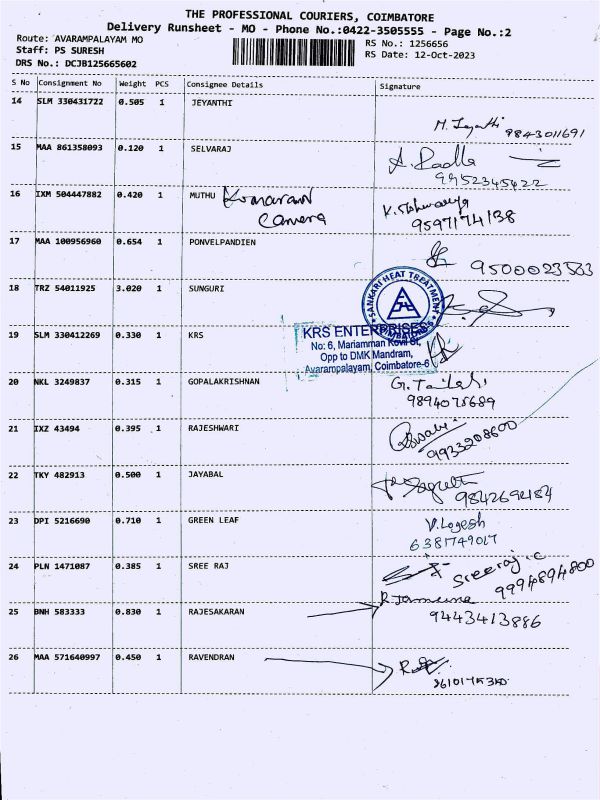 THE PROFESSIONAL COURIERS, COIMBATORE
Delivery Runsheet - MO - Phone No.:0422-3505555 - Page No.:2
Route: AVARAMPALAYAM MO
RS No.: 1256656
Staff: PS SURESH
RS Date: 12-Oct-2023
DRS No.: DCJB125665602
S No Consignment No Weight PCS Consignee Details Signature
14 SLM 330431722 0.505 1 JEYANTHI
M. Jeyanthi 9843011691
15 MAA 861358093 0.120 1 SELVARAJ
A. Radha
9952345422
16 IXM 504447882 0.420 1 MUTHU Kumaran
Camera
K. Aishwarya
9597174138
17 MAA 100956960 0.654 1 PONVELPANDIEN
9500023533
18 TRZ 54011925 3.020 1 SUNGURI
SANKARI HEAT TREATMENT
COIMBATORE
19 SLM 330412269 0.330 1 KRS
KRS ENTERPRISES
No: 6, Mariamman Kovil St,
Opp to DMK Mandram,
Avarampalayam, Coimbatore-6
20 NKL 3249837 0.315 1 GOPALAKRISHNAN
9894075689
21 IXZ 43494 0.395 1 RAJESHWARI
9933208600
22 TKY 482913 0.500 1 JAYABAL
9842694184
23 DPI 5216690 0.710 1 GREEN LEAF
V. Logesh
6381749017
24 PLN 1471087 0.385 1 SREE RAJ
Sreeraj. C
9994894800
25 BNH 583333 0.830 1 RAJESAKARAN
R Jamuna
9443413886
26 MAA 571640997 0.450 1 RAVENDRAN